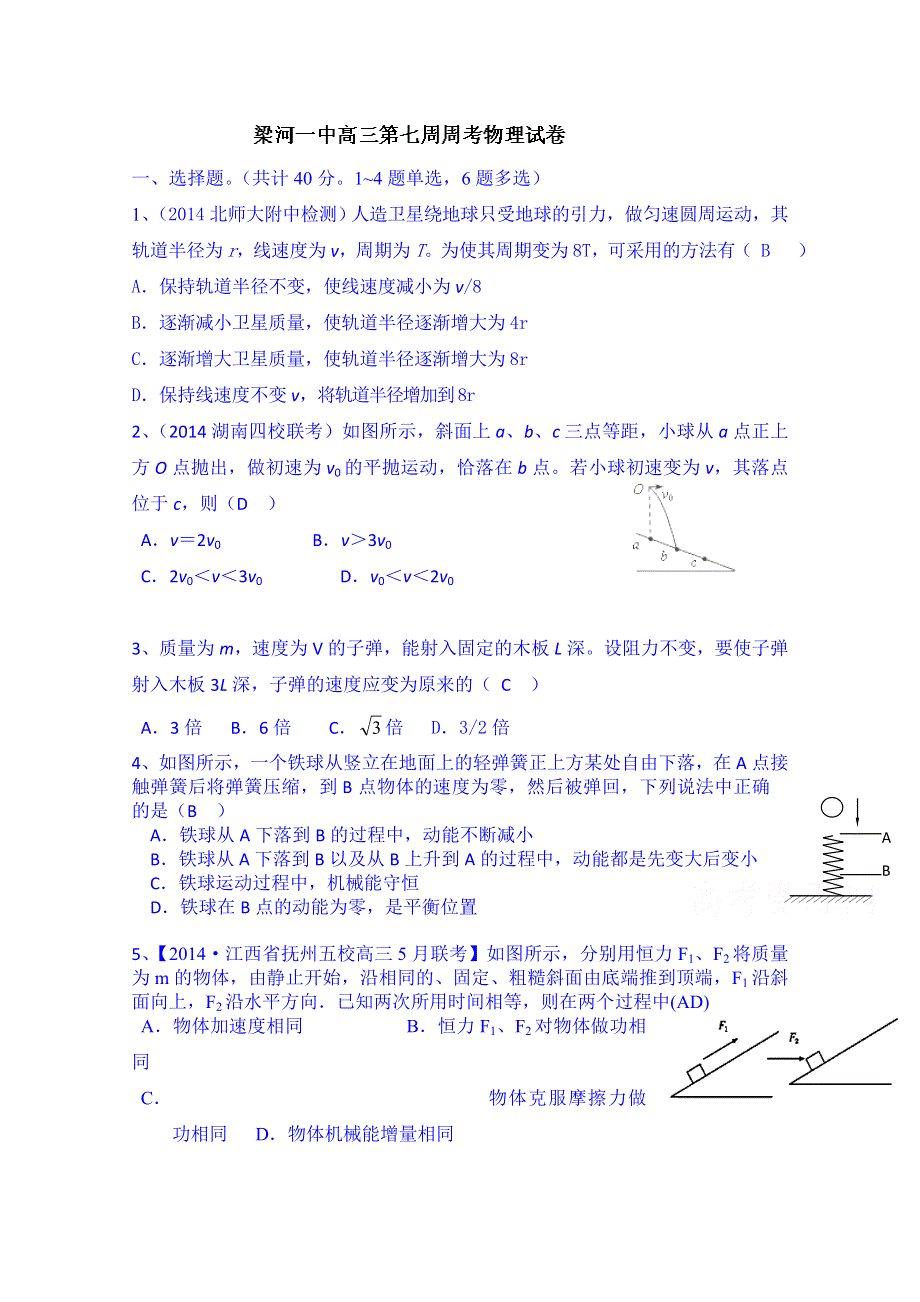 梁河一中高三第七周周考物理试卷
一、选择题。（共计 40 分。1~4 题单选，6 题多选）
1、（2014 北师大附中检测）人造卫星绕地球只受地球的引力，做匀速圆周运动，其
轨道半径为 r，线速度为 v，周期为 T。为使其周期变为 8T，可采用的方法有（ B ）
A．保持轨道半径不变，使线速度减小为 v/8
B．逐渐减小卫星质量，使轨道半径逐渐增大为 4r
C．逐渐增大卫星质量，使轨道半径逐渐增大为 8r
D．保持线速度不变 v，将轨道半径增加到 8r
2、（2014 湖南四校联考）如图所示，斜面上 a、b、c 三点等距，小球从 a 点正上
方 O 点抛出，做初速为 v0 的平抛运动，恰落在 b 点。若小球初速变为 v，其落点
位于 c，则（D ）
O v0
a b c
A．v＝2v0 B．v＞3v0
C．2v0＜v＜3v0 D．v0＜v＜2v0
3、质量为 m，速度为 V 的子弹，能射入固定的木板 L 深。设阻力不变，要使子弹
射入木板 3L 深，子弹的速度应变为原来的（ C ）
A．3 倍 B．6 倍 C．√3 倍 D．3/2 倍
4、如图所示，一个铁球从竖立在地面上的轻弹簧正上方某处自由下落，在 A 点接
触弹簧后将弹簧压缩，到 B 点物体的速度为零，然后被弹回，下列说法中正确
的是（B ）
A．铁球从 A 下落到 B 的过程中，动能不断减小
B．铁球从 A 下落到 B 以及从 B 上升到 A 的过程中，动能都是先变大后变小
C．铁球运动过程中，机械能守恒
D．铁球在 B 点的动能为零，是平衡位置
A
B
5、【2014·江西省抚州五校高三 5 月联考】如图所示，分别用恒力 F1、F2 将质量
为 m 的物体，由静止开始，沿相同的、固定、粗糙斜面由底端推到顶端，F1 沿斜
面向上，F2 沿水平方向．已知两次所用时间相等，则在两个过程中(AD)
A．物体加速度相同 B．恒力 F1、F2 对物体做功相
同
C． 物体克服摩擦力做
功相同 D．物体机械能增量相同
F1 F2